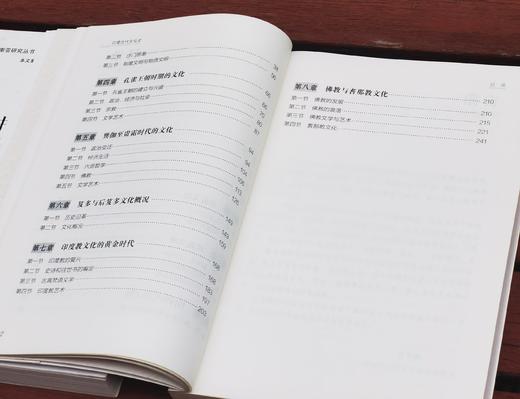 印度古代文化史
第二节 沙门思潮 34
第三节 制度文明与物质文明 56
第四章 孔雀王朝时期的文化 66
第一节 孔雀王朝的建立与兴盛
第二节 政治、经济与社会
第三节 宗教
第四节 文学艺术 87
第五章 贵霜时代的文化 94
第一节 政治变迁 94
第二节 经济生活
第三节 六派哲学
第四节 佛教
第五节 文学艺术 126
第六章 笈多与后笈多文化概况 149
第一节 历史沿革 149
第二节 文化概况 159
第七章 印度教文化的黄金时代 168
第一节 印度教的复兴 168
第二节 史诗和往世书的编定
第三节 古典梵语文学 183
第四节 印度教艺术 203
目录
第八章 佛教与耆那教文化 210
第一节 佛教的发展 210
第二节 佛教的衰落 215
第三节 佛教文学与艺术 221
第四节 耆那教文化 241